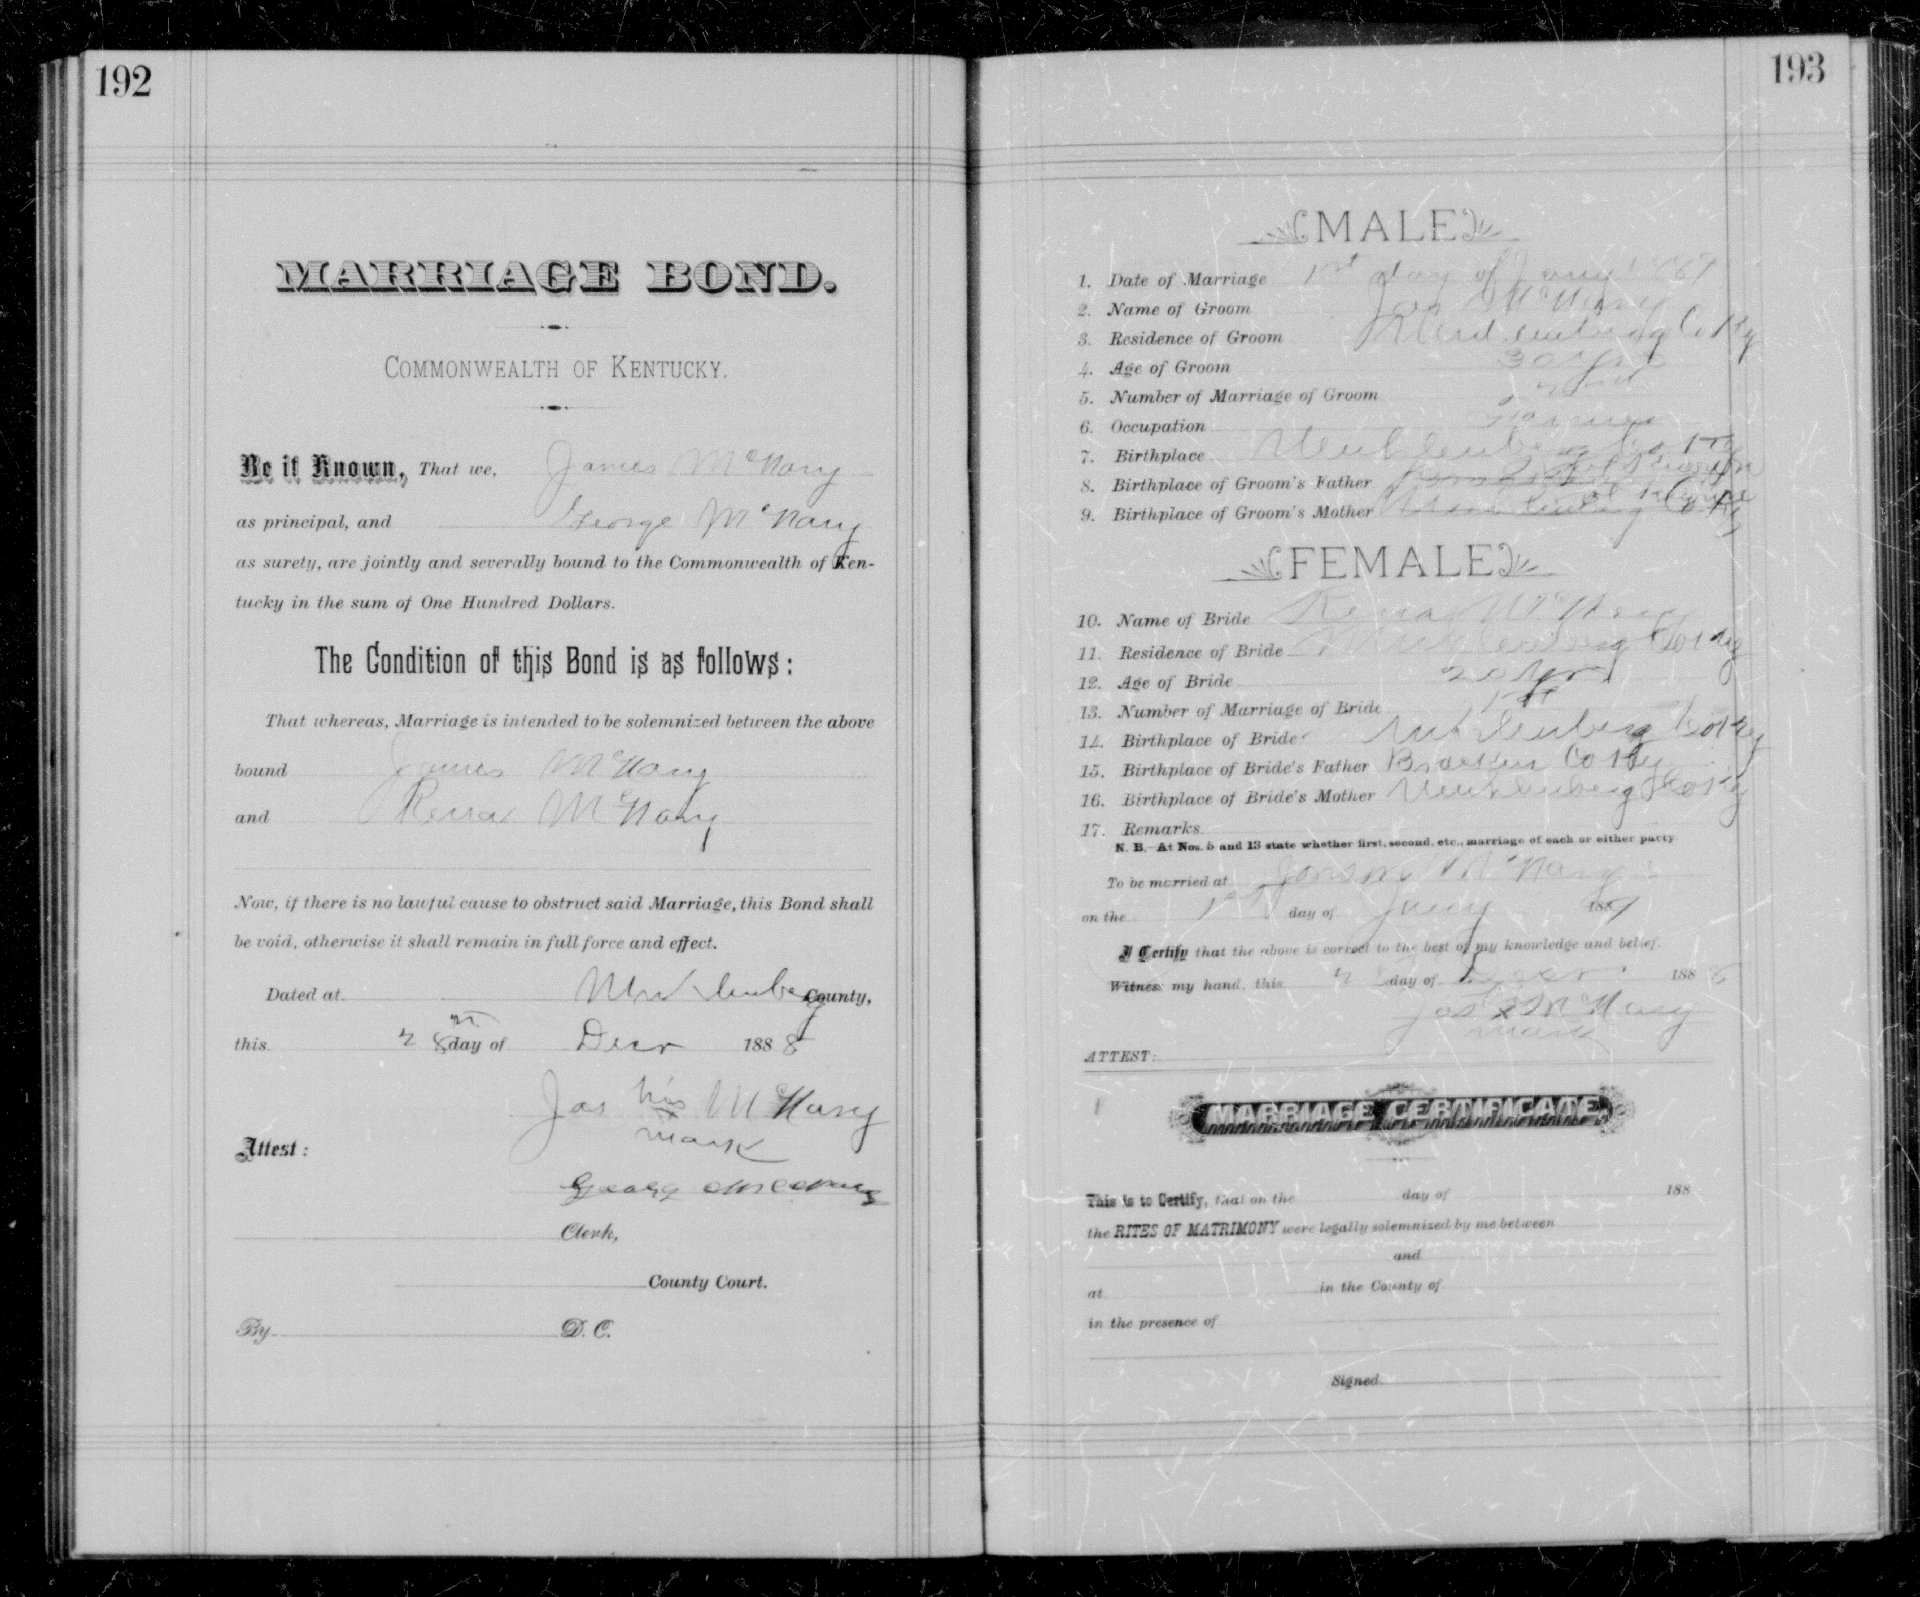 192
MARRIAGE BOND.
COMMONWEALTH OF KENTUCKY.
Be it Known, That we, James McNary
as principal, and George McNary
as surety, are jointly and severally bound to the Commonwealth of Ken-
tucky in the sum of One Hundred Dollars.
The Condition of this Bond is as follows:
That whereas, Marriage is intended to be solemnized between the above
bound James McNary
and Rena McNary
Now, if there is no lawful cause to obstruct said Marriage, this Bond shall
be void, otherwise it shall remain in full force and effect.
Dated at Muhlenberg County,
this 28 day of Decr 1888
Jas his x mark McNary
Attest:
George McNary
Clerk,
County Court.
By D. C.
193
MALE
1. Date of Marriage 1st day of Jany 1889
2. Name of Groom Jas McNary
3. Residence of Groom Muhlenberg Co Ky
4. Age of Groom 30 yrs
5. Number of Marriage of Groom 2nd
6. Occupation Farmer
7. Birthplace Muhlenberg Co Ky
8. Birthplace of Groom's Father
9. Birthplace of Groom's Mother Muhlenberg Co Ky
FEMALE
10. Name of Bride Rena McNary
11. Residence of Bride Muhlenberg Co Ky
12. Age of Bride 20 yrs
13. Number of Marriage of Bride 1st
14. Birthplace of Bride Muhlenberg Co Ky
15. Birthplace of Bride's Father Bracken Co Ky
16. Birthplace of Bride's Mother Muhlenberg Co Ky
17. Remarks
N. B.—At Nos. 5 and 13 state whether first, second, etc., marriage of each or either party
To be married at McNary
on the 1st day of Jany 1889
I Certify that the above is correct to the best of my knowledge and belief.
Witness my hand, this 28 day of Decr 1888
Jas x McNary
mark
ATTEST:
MARRIAGE CERTIFICATE.
This is to Certify, that on the day of 188
the RITES OF MATRIMONY were legally solemnized by me between
and
at in the County of
in the presence of
Signed